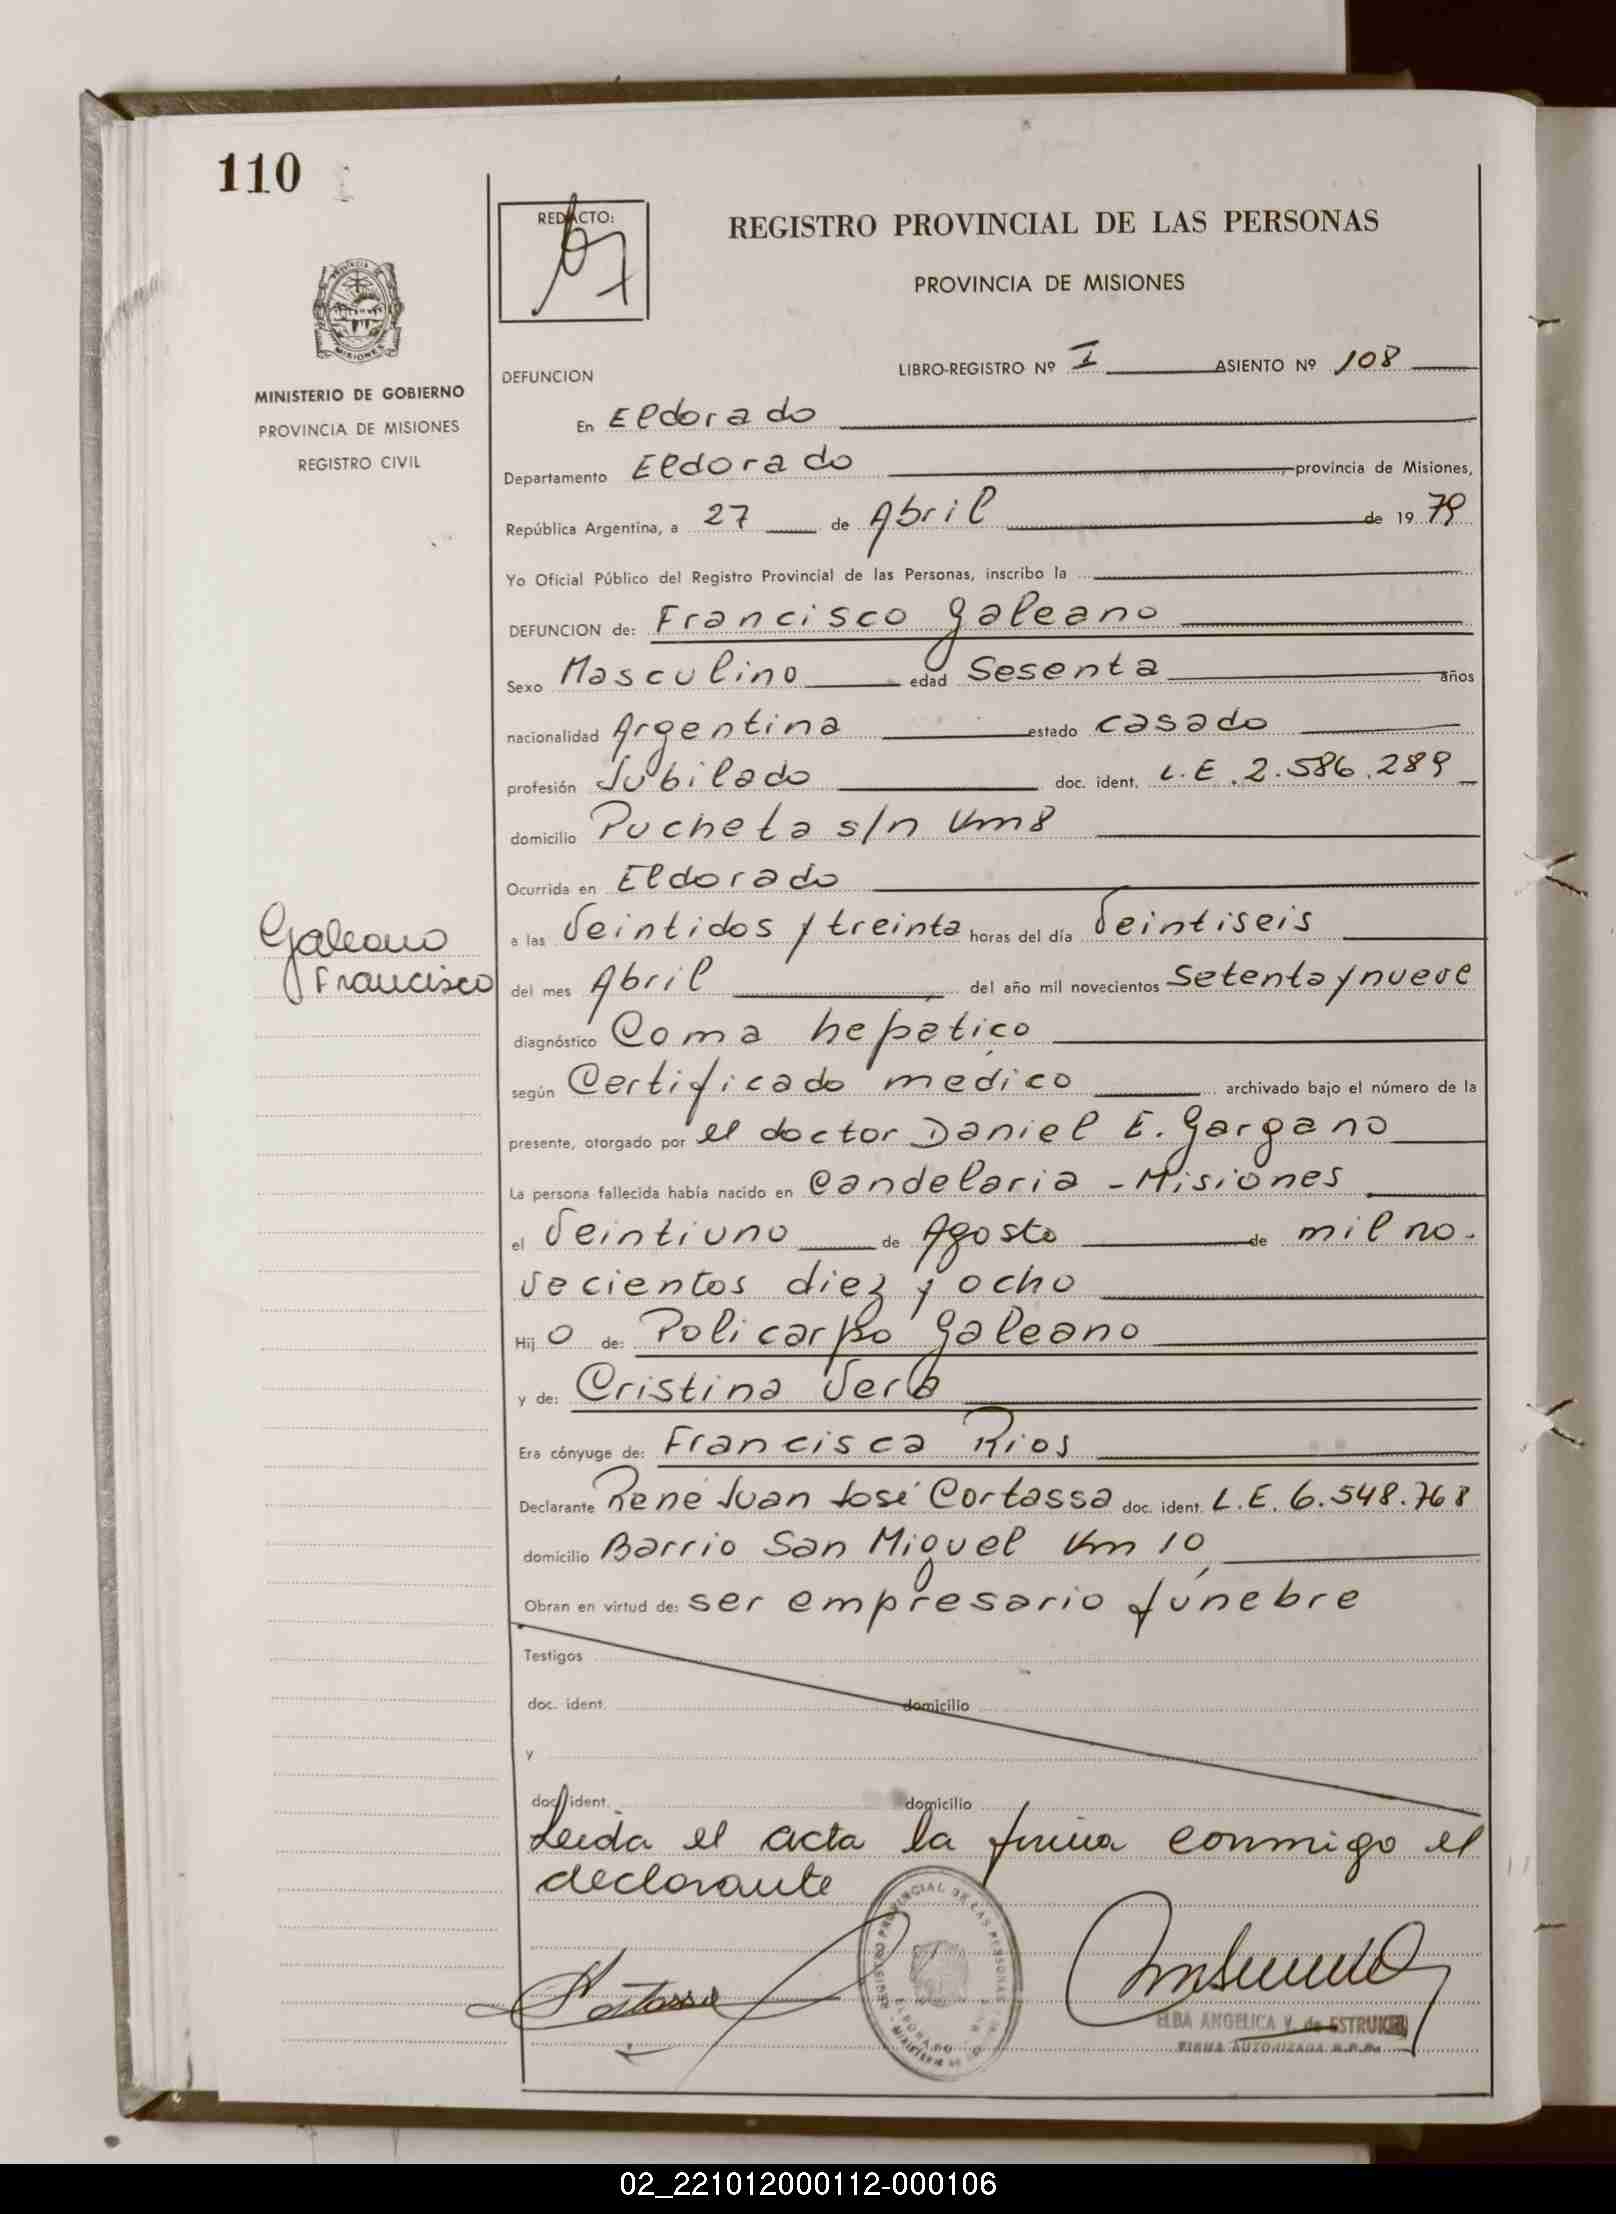 110
REDACTO:
REGISTRO PROVINCIAL DE LAS PERSONAS
PROVINCIA DE MISIONES
MISIONES
MINISTERIO DE GOBIERNO
PROVINCIA DE MISIONES
REGISTRO CIVIL
DEFUNCION
LIBRO-REGISTRO Nº I ASIENTO Nº 108
En Eldorado
Departamento Eldorado provincia de Misiones,
República Argentina, a 27 de Abril de 1979
Yo Oficial Público del Registro Provincial de las Personas, inscribo la
DEFUNCION de: Francisco Galeano
Sexo Masculino edad Sesenta años
nacionalidad Argentina estado casado
profesión Jubilado doc. ident. L.E. 2.586.289
domicilio Pucheta s/n Km8
Ocurrida en Eldorado
Galeano
Francisco
a las Veintidos y treinta horas del día Veintiseis
del mes Abril del año mil novecientos Setenta y nueve
diagnóstico Coma hepatico
según Certificado medico archivado bajo el número de la
presente, otorgado por el doctor Daniel E. Gargano
La persona fallecida había nacido en Candelaria - Misiones
el Veintiuno de Agosto de mil no-
vecientos diez y ocho
Hijo de: Policarpo Galeano
y de: Cristina Vera
Era cónyuge de: Francisca Rios
Declarante René Juan José Cortassa doc. ident. L.E. 6.548.768
domicilio Barrio San Miguel Km 10
Obran en virtud de: ser empresario fúnebre
Testigos
doc. ident. domicilio
y
doc. ident. domicilio
Leida el acta la firma conmigo el
declarante
REGISTRO PROVINCIAL DE LAS PERSONAS
ELDORADO
ELBA ANGELICA V. de ESTRUKEL
FIRMA AUTORIZADA R.P.P.
02_221012000112-000106